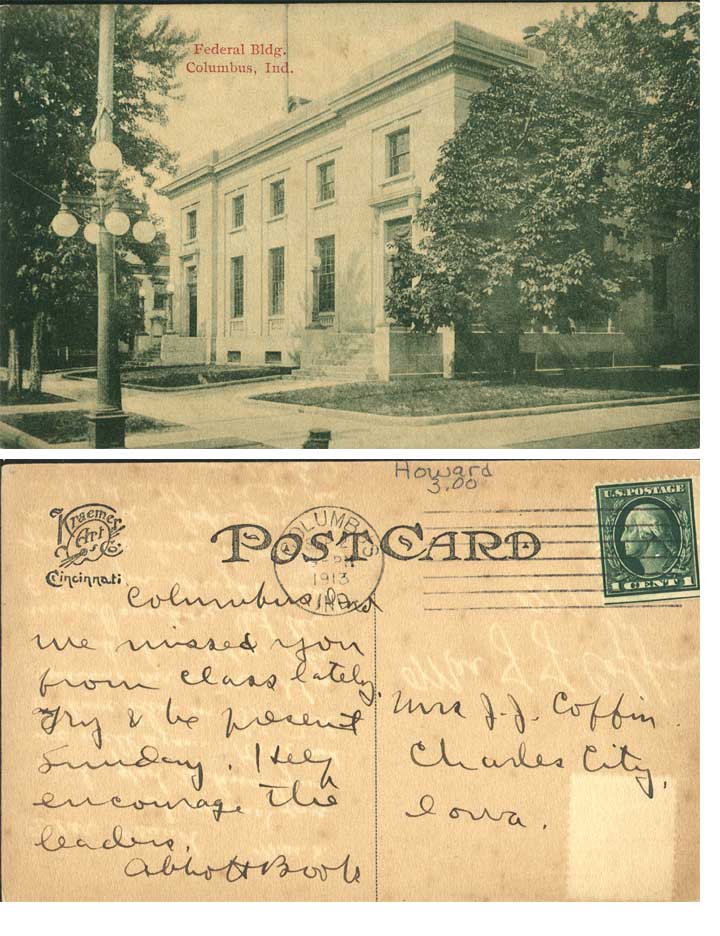 Federal Bldg.
Columbus, Ind.
Howard
3.00
Kraemer
Art
Co.
Cincinnati
POST CARD
COLUMBUS
PM
1913
IND.
U.S. POSTAGE
1 CENT 1
Columbus, Ind
We missed you
from class lately.
Try & be present
Sunday. Help
encourage the
leaders.
Abbott Book
Mrs J.J. Coffin.
Charles City,
Iowa.